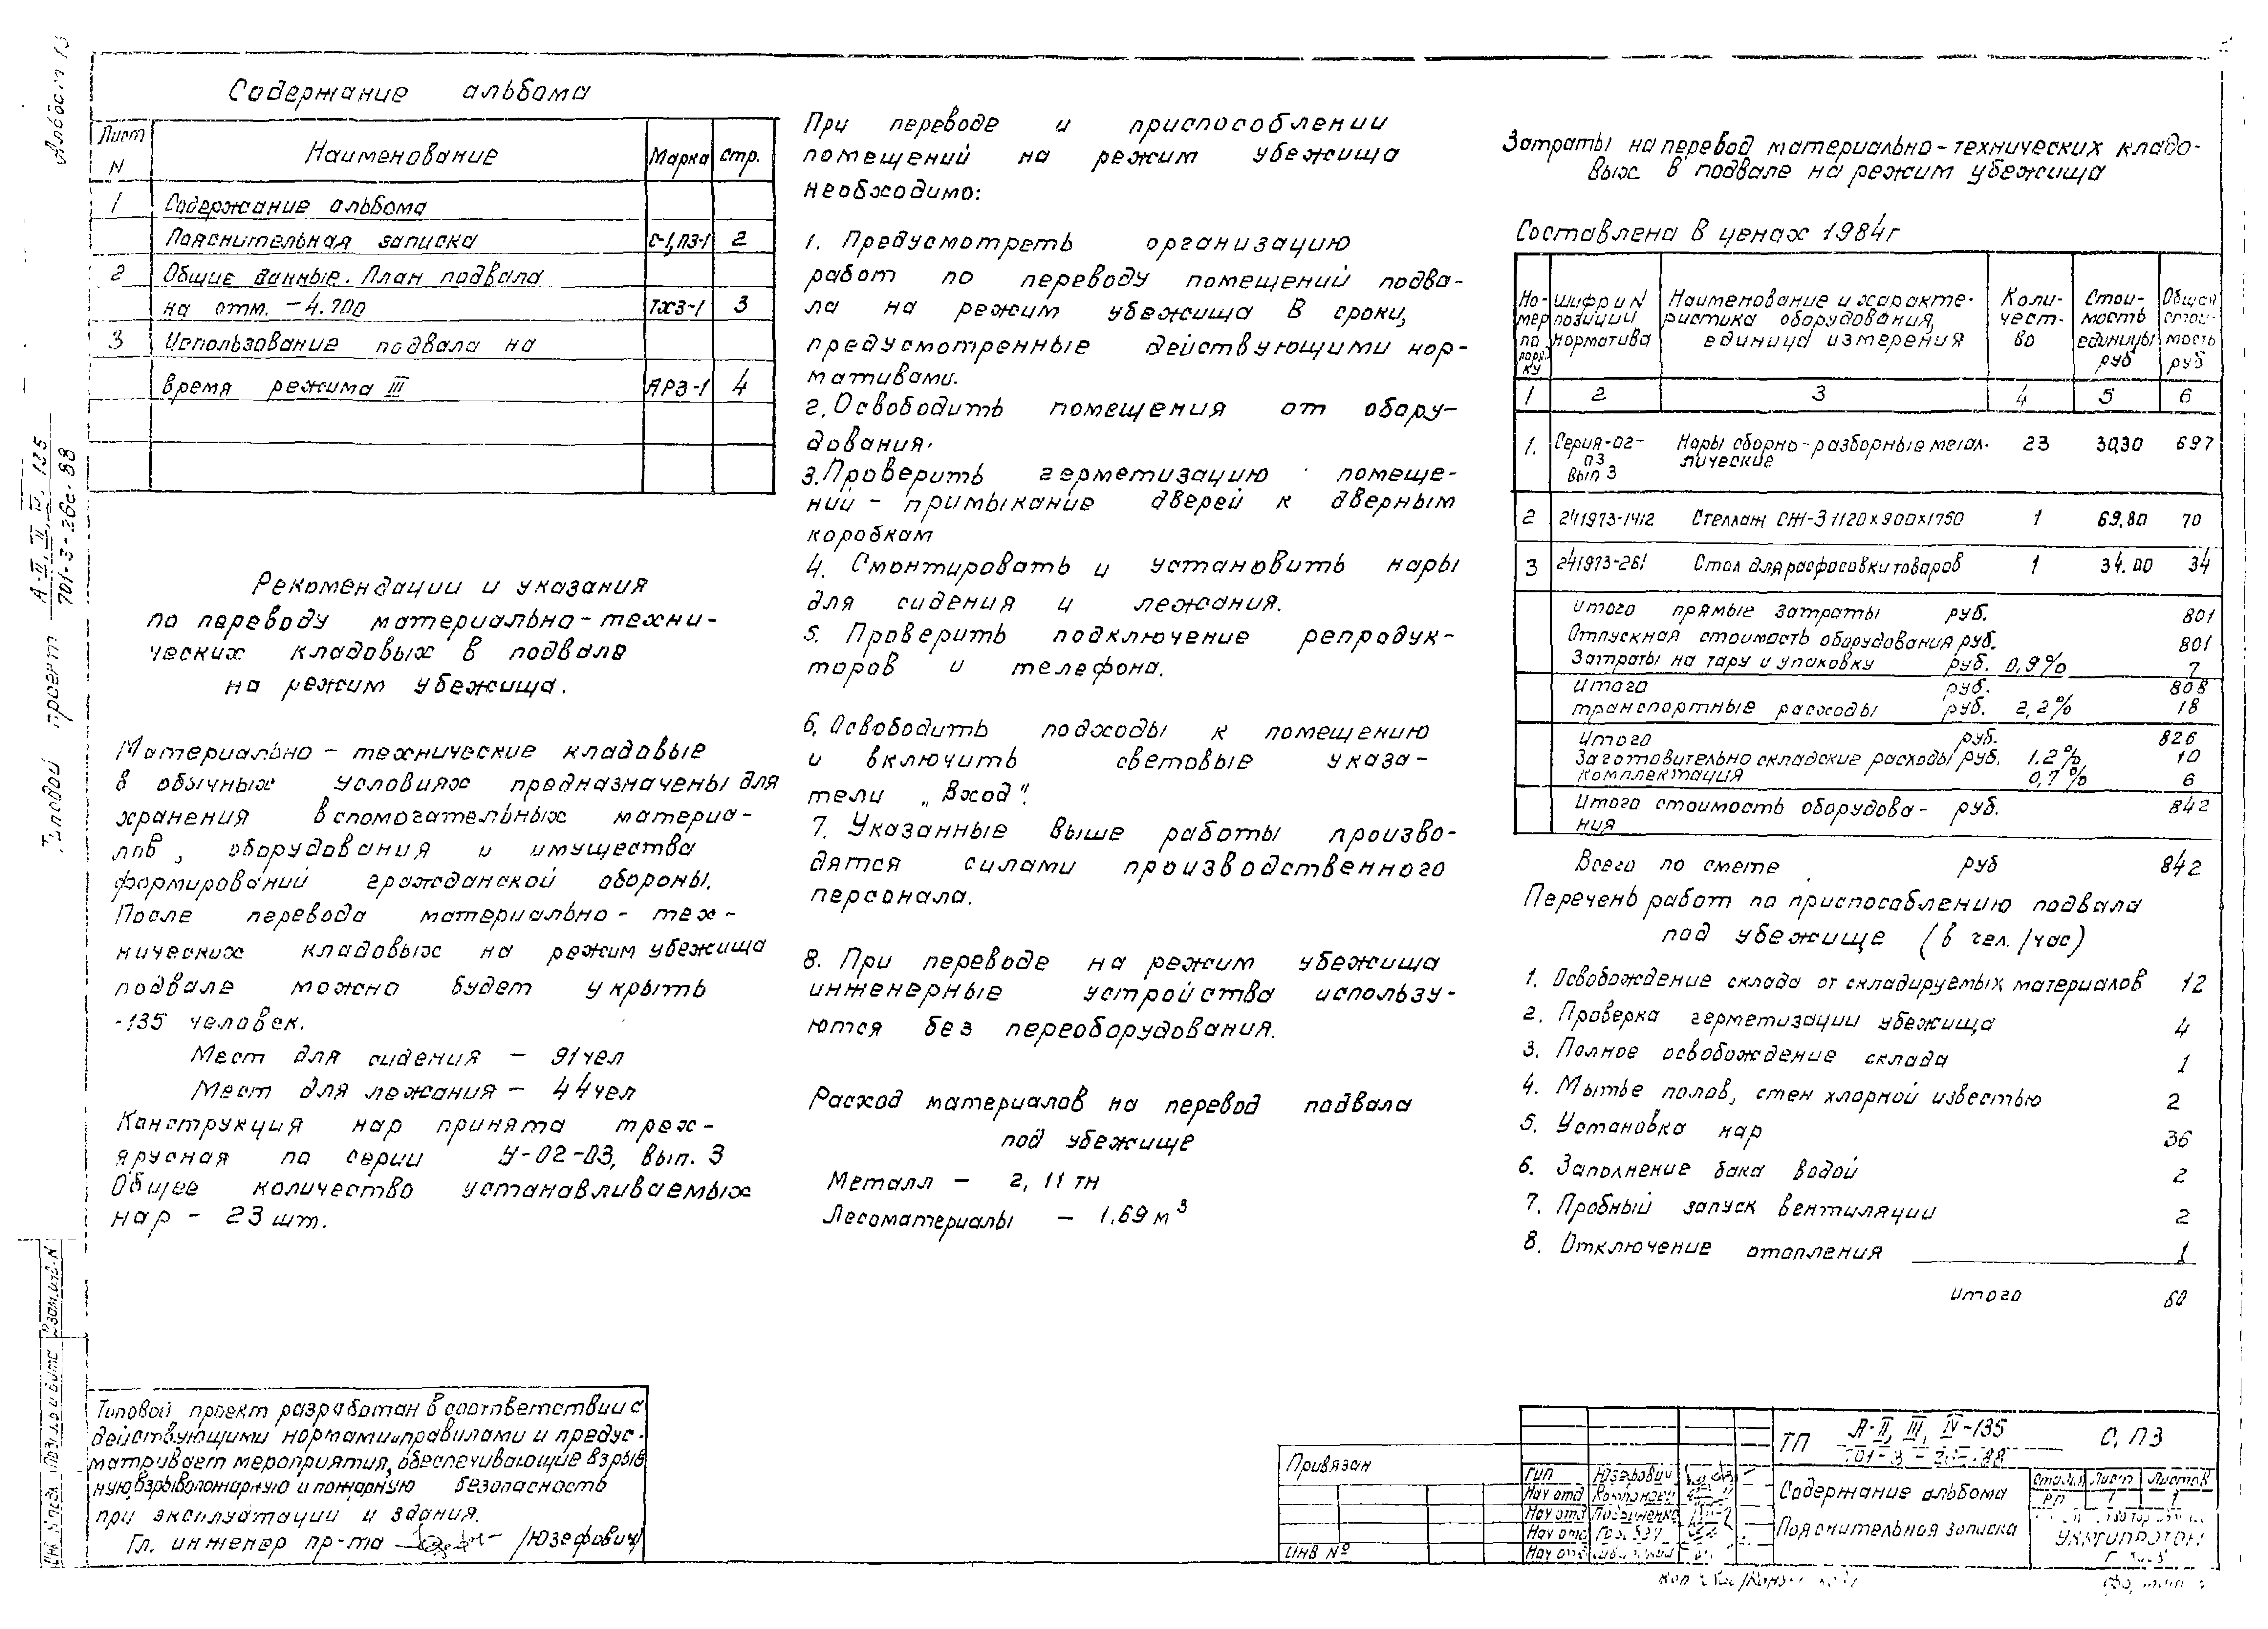 Содержание альбома
Лист N Наименование Марка стр.
1 Содержание альбома
Пояснительная записка С-1, ПЗ-1 2
2 Общие данные. План подвала
на отм. -4.700 ТХЗ-1 3
3 Использование подвала на
время режима III АРЗ-1 4
Рекомендации и указания
по переводу материально-техни-
ческих кладовых в подвале
на режим убежища.
Материально-технические кладовые
в обычных условиях предназначены для
хранения вспомогательных материа-
лов, оборудования и имущества
формирований гражданской обороны.
После перевода материально-тех-
нических кладовых на режим убежища
подвале можно будет укрыть
-135 человек.
Мест для сидения - 91 чел
Мест для лежания - 44 чел
Конструкция нар принята трех-
ярусная по серии У-02-03, вып. 3
Общее количество устанавливаемых
нар - 23 шт.
Типовой проект разработан в соответствии с
действующими нормами и правилами и предус-
матривает мероприятия, обеспечивающие взрыв
ную, взрывопожарную и пожарную безопасность
при эксплуатации и здания.
Гл. инженер пр-та /Юзефович/
При переводе и приспособлении
помещений на режим убежища
необходимо:
1. Предусмотреть организацию
работ по переводу помещений подва-
ла на режим убежища в сроки,
предусмотренные действующими нор-
мативами.
2. Освободить помещения от обору-
дования.
3. Проверить герметизацию помеще-
ний - примыкание дверей к дверным
коробкам
4. Смонтировать и установить нары
для сидения и лежания.
5. Проверить подключение репродук-
торов и телефона.
6. Освободить подходы к помещению
и включить световые указа-
тели „Вход".
7. Указанные выше работы произво-
дятся силами производственного
персонала.
8. При переводе на режим убежища
инженерные устройства использу-
ются без переоборудования.
Расход материалов на перевод подвала
под убежище
Металл - 2,11 тн
Лесоматериалы - 1.69 м³
Затраты на перевод материально-технических кладо-
вых в подвале на режим убежища
Составлена в ценах 1984г
Но- шифр и N Наименование и характе- Коли- Стои- Общая
мер позиции ристика оборудования, чест- мость стои-
по норматива единица измерения во единицы мость
поряд. ку руб руб
1 2 3 4 5 6
1. Серия-02- Нары сборно-разборные метал- 23 30,30 697
03 лические
Вып 3
2 241973-1412 Стеллаж СЖ-3 1120х900х1750 1 69,80 70
3 241973-261 Стол для расфасовки товаров 1 34.00 34
Итого прямые затраты руб. 801
Отпускная стоимость оборудования руб. 801
Затраты на тару и упаковку руб. 0,9% 7
Итого руб. 808
транспортные расходы руб. 2,2% 18
Итого руб. 826
Заготовительно складские расходы руб. 1.2% 10
комплектация 0,7% 6
Итого стоимость оборудова- руб. 842
ния
Всего по смете руб 842
Перечень работ по приспособлению подвала
под убежище (в чел./час)
1. Освобождение склада от складируемых материалов 12
2. Проверка герметизации убежища 4
3. Полное освобождение склада 1
4. Мытье полов, стен хлорной известью 2
5. Установка нар 36
6. Заполнение бака водой 2
7. Пробный запуск вентиляции 2
8. Отключение отопления 1
Итого 60
Привязан
ИНВ Nº
Гип Юзефович
Нач отд
Нач отд
Нач отд
Нач отд
ТП А-II, III, IV-135 С, ПЗ
Содержание альбома
Пояснительная записка
Стадия Лист Листов
РП 1 1
Типовой проект А-II, III, IV, 135
701-3-26с.88
Взам.инв.N